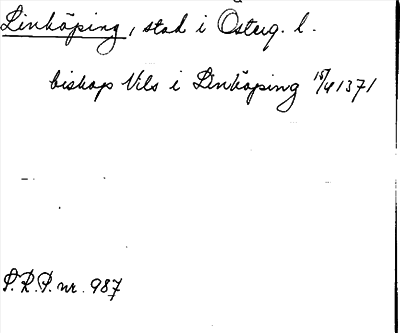 Linköping, stad i Österg. l.
biskop Nils i Linköping 15/4 1371
S.R.P. nr. 987